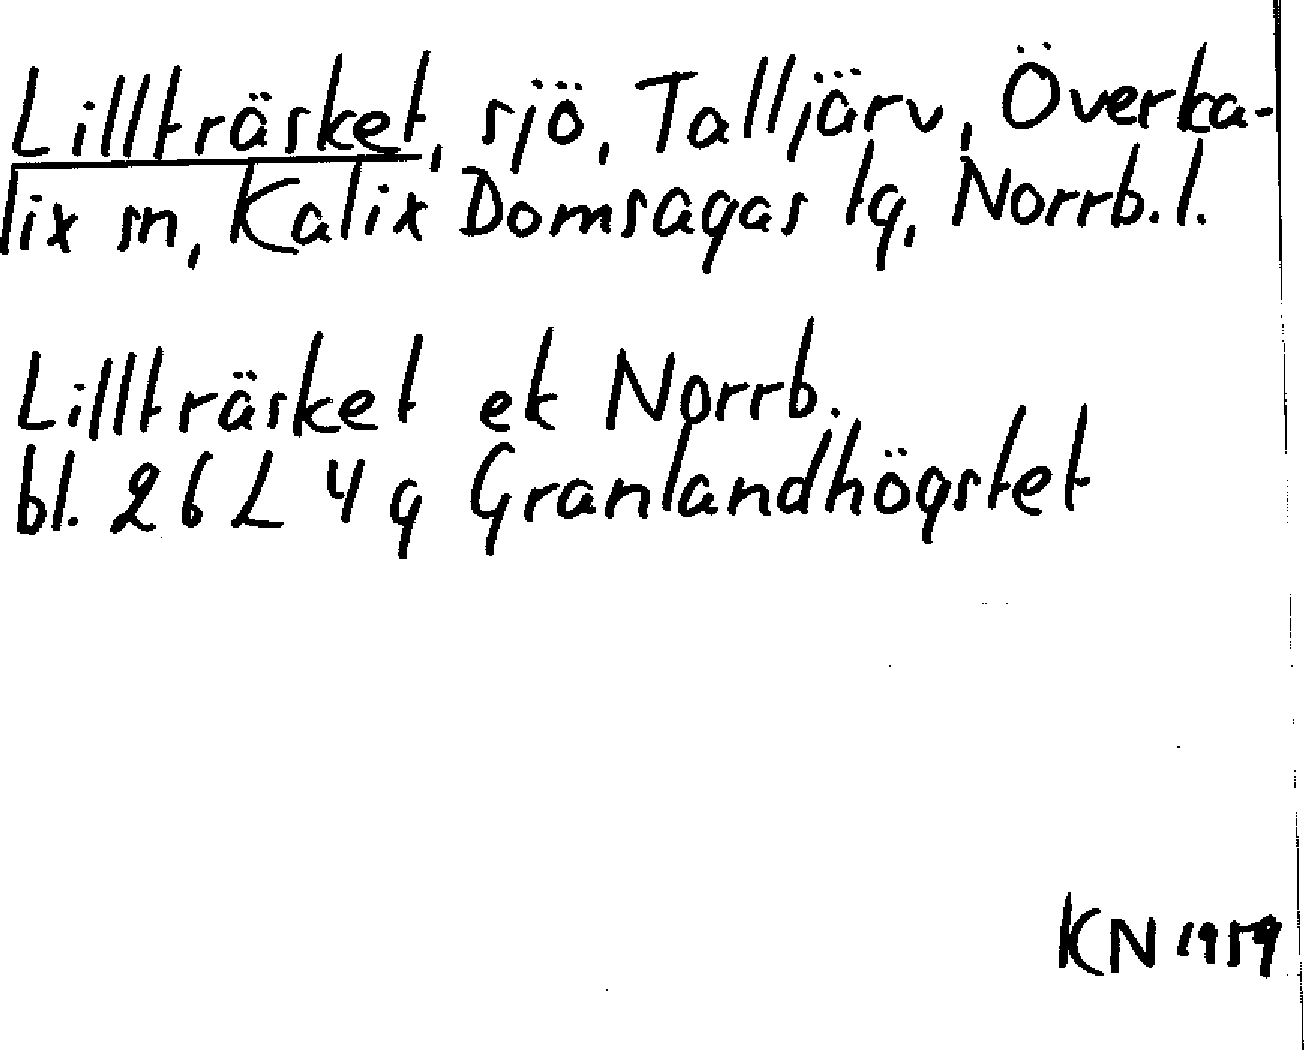 Lillträsket, sjö, Talljärv, Överka-
lix sn, Kalix Domsagas lg, Norrb. l.
Lillträsket ek Norrb.
bl. 26 L 4 g Granlandhögstet
KN 1959